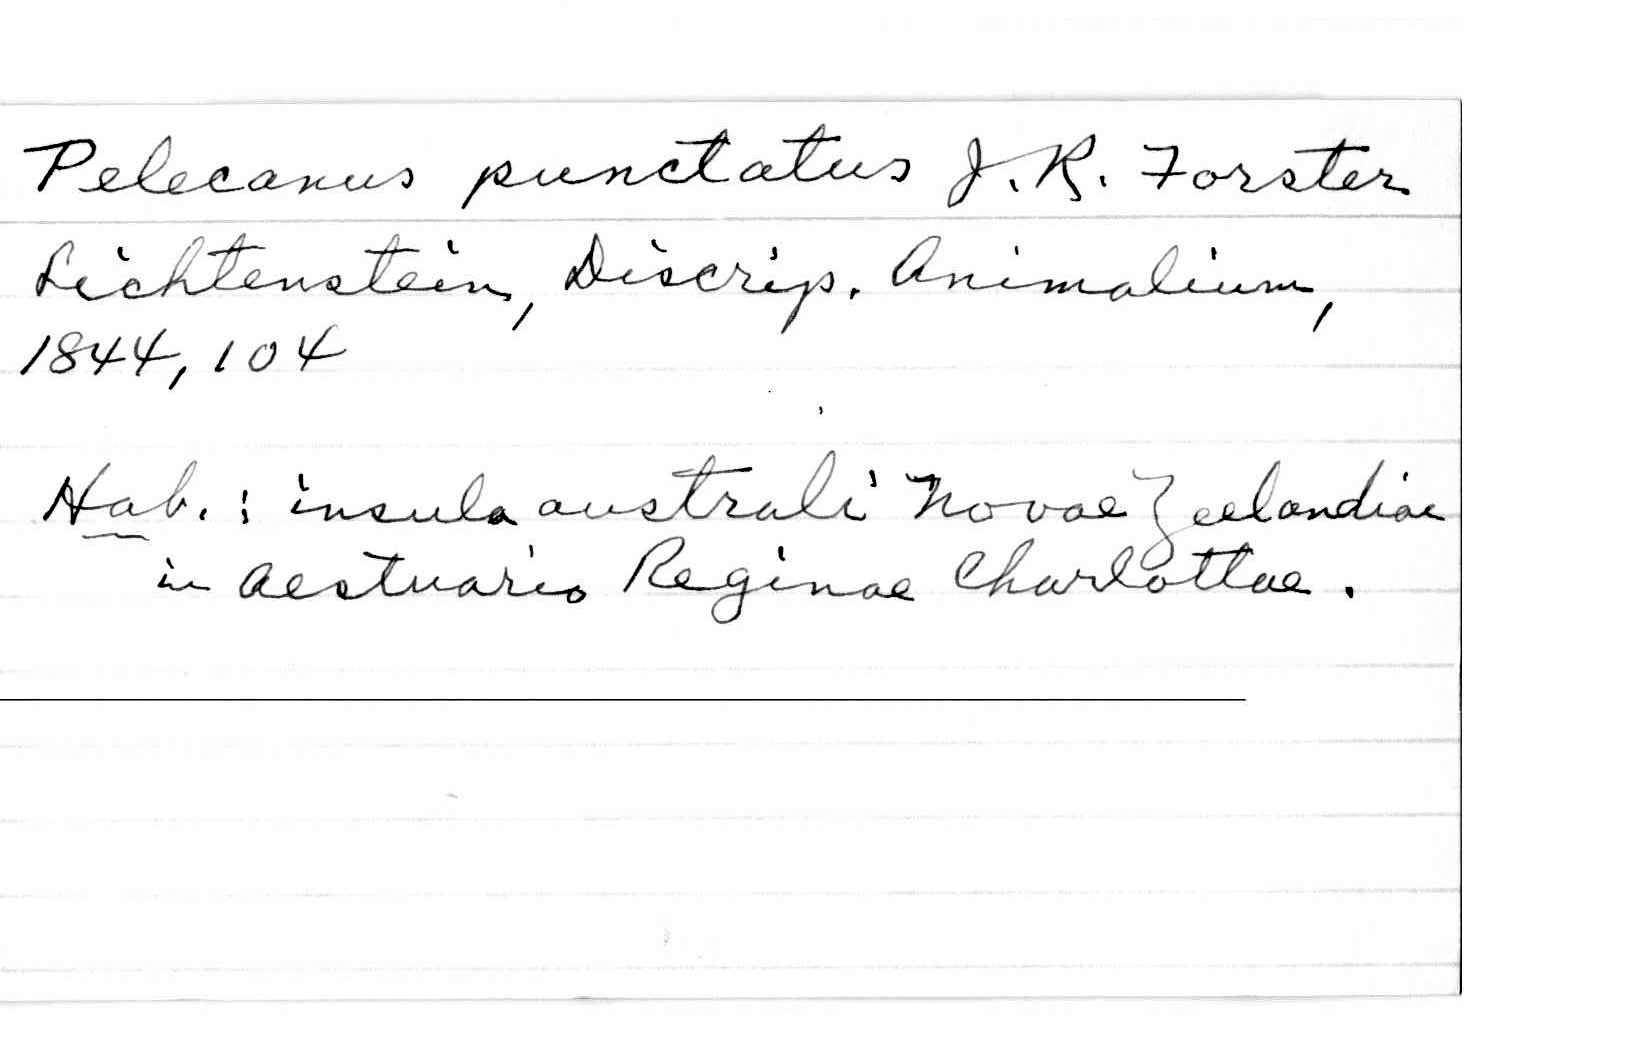 Pelecanus punctatus J. R. Forster
Lichtenstein, Discrip. Animalium,
1844, 104
Hab. : insula australi Novae Zeelandiae
in aestuario Reginae Charlottae.